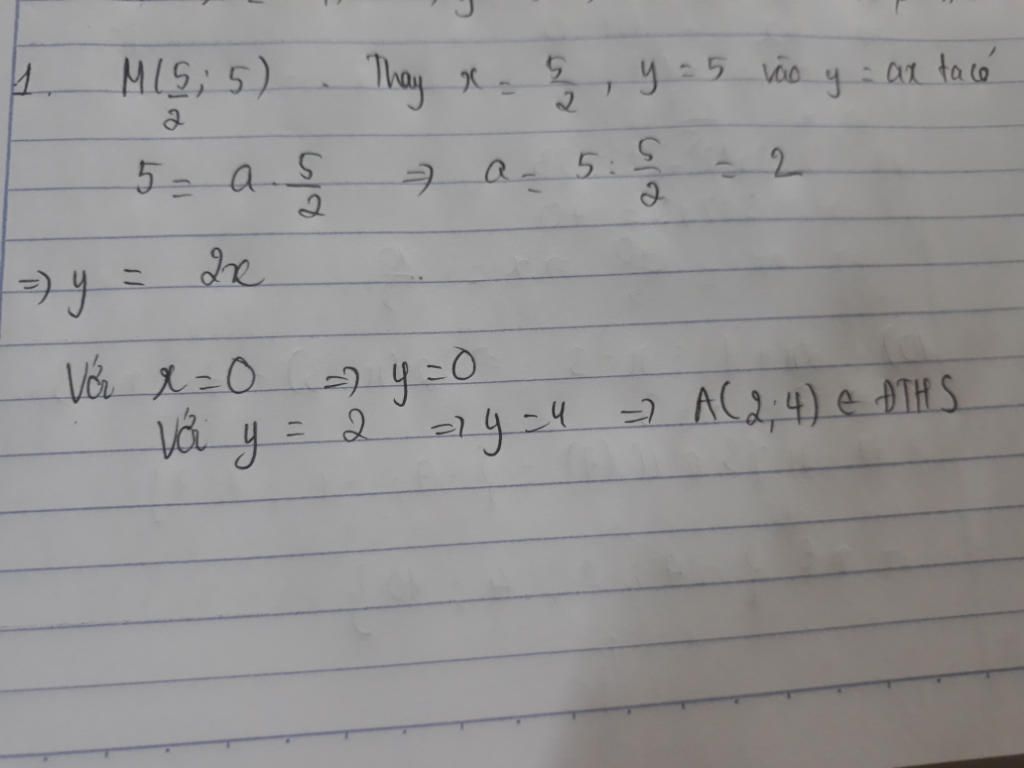 1. M(5/2; 5). Thay x = 5/2, y = 5 vào y = ax ta có
5 = a . 5/2 => a = 5 : 5/2 = 2
=> y = 2x
Với x = 0 => y = 0
Với y = 2 => y = 4 => A(2;4) ∈ ĐTHS